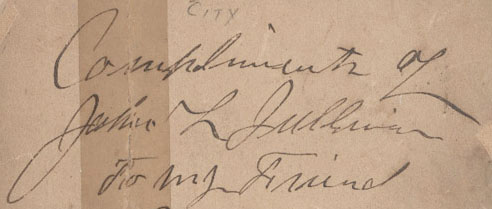 CITY
Compliments of
John L Sullivan
To my Friend